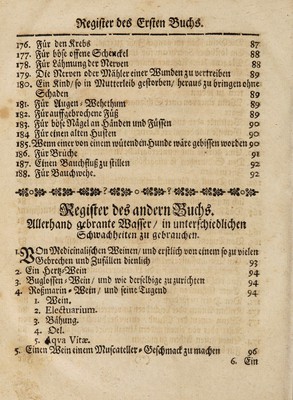 Register des Ersten Buchs.
176. Für den Krebs 87
177. Für böse offene Schenckel 88
178. Für Lähmung der Nerven 88
179. Die Nerven oder Mähler einer Wunden zu vertreiben 89
180. Ein Kind/ so in Mutterleib gestorben/ heraus zu bringen ohne
Schaden 89
181. Für Augen-Wehethum 89
182. Für auffgebrochene Füß 89
183. Für böß Mägel an Händen und Füssen 90
184 Für einen alten Husten 90
185. Wenn einer von einem wütenden Hunde wäre gebissen worden 90
186. Für Brüche 91
187. Einen Bauchfluß zu stillen 91
188. Für Bauchwehe. 92
Register des andern Buchs.
Allerhand gebrante Wasser/ in unterschiedlichen
Schwachheiten zu gebrauchen.
1. VOn Medicinalischen Weinen/ und erstlich von einem so zu vielen
Gebrechen und Zufällen dienlich 93
2. Ein Hertz-Wein 94
3. Buglossen-Wein/ und wie derselbige zuzurichten 94
4. Roßmarin-Wein/ und seine Tugend 94
1. Wein.
2. Electuarium.
3. Bähung.
4. Oel.
5. Aqva Vitæ.
5. Einen Wein einem Muscateller-Geschmack zu machen 96
6. Ein